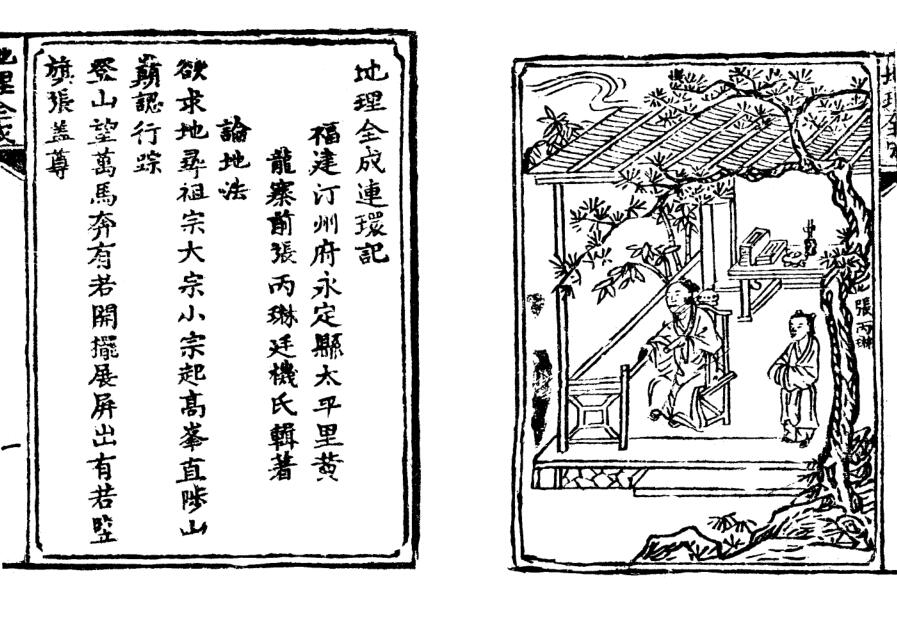 地理全成
張丙琳
地理全成連環記
福建汀州府永定縣太平里黃
龍寨前張丙琳廷機氏輯著
論地法
欲求地尋祖宗大宗小宗起高峯直陟山
巔認行踪
登山望萬馬奔有若開擺展屏出有若竪
旗張盖尊
地理全成
一